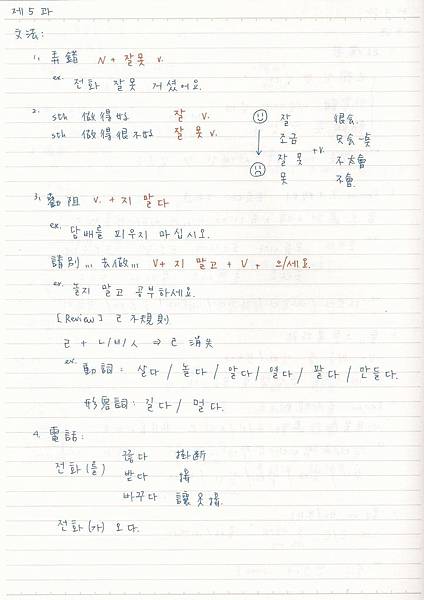 제 5 과
文法:
1. 弄錯 N + 잘못 V.
ex. 전화 잘못 거셨어요.
2. sth 做得好 잘 V.
sth 做得很不好 잘 못 V.
잘 很會.
조금 只會一點
잘 못 +V. 不太會
못 不會.
3. 勸阻 V. + 지 말다
ex. 담배를 피우지 마십시오.
請別... 去做... V + 지 말고 + V + 으/세요.
ex. 놀지 말고 공부하세요.
[Review] ㄹ 不規則
ㄹ + ㄴ/ㅂ/ㅅ ⇒ ㄹ 消失
ex. 動詞: 살다 / 놀다 / 알다 / 열다 / 팔다 / 만들다.
形容詞: 길다 / 멀다.
4. 電話:
전화 (를)
끊다 掛斷
받다 接
바꾸다 讓 接.
전화 (가) 오다.